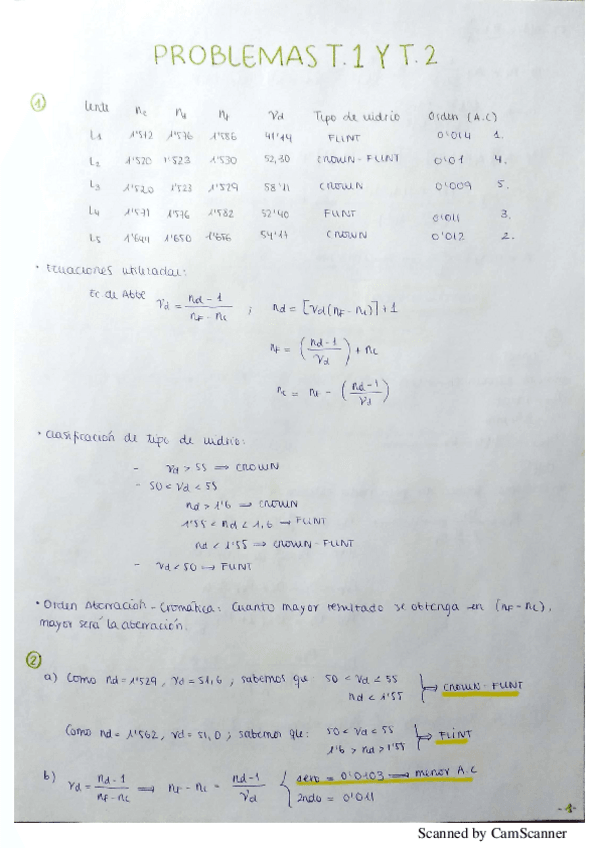 PROBLEMAS T.1 Y T.2
① Lente nc nd nF Vd Tipo de vidrio Orden (A.C)
L1 1'572 1'576 1'586 41'14 FLINT 0'014 1.
L2 1'520 1'523 1'530 52,30 CROWN-FLINT 0'01 4.
L3 1'520 1'523 1'529 58'11 CROWN 0'009 5.
L4 1'571 1'576 1'582 52'40 FLINT 0'011 3.
L5 1'644 1'650 1'656 54'17 CROWN 0'012 2.
· Ecuaciones utilizadas:
Ec. de Abbe Vd = nd-1 / nF-nc ; nd = [Vd(nF-nc)]+1
nF = (nd-1 / Vd) + nc
nc = nF - (nd-1 / Vd)
· Clasificación de tipo de vidrio:
- Vd > 55 ⟹ CROWN
- 50 < Vd < 55
nd > 1'6 → CROWN
1'55 < nd < 1,6 → FLINT
nd < 1'55 ⟹ CROWN-FLINT
- Vd < 50 → FLINT
· Orden Aberración-Cromática: Cuanto mayor resultado se obtenga en (nF-nc),
mayor será la aberración.
②
a) Como nd = 1'529, Vd = 51,6 ; sabemos que 50 < Vd < 55
nd < 1'55 → CROWN-FLINT
Como nd = 1'562, Vd = 51,0 ; sabemos que: 50 < Vd < 55
1'6 > nd > 1'55 → FLINT
b) Vd = nd-1 / nF-nc ⟹ nF-nc = nd-1 / Vd { 1ero = 0'0103 → menor A.C
2ndo = 0'011
-1-
Scanned by CamScanner